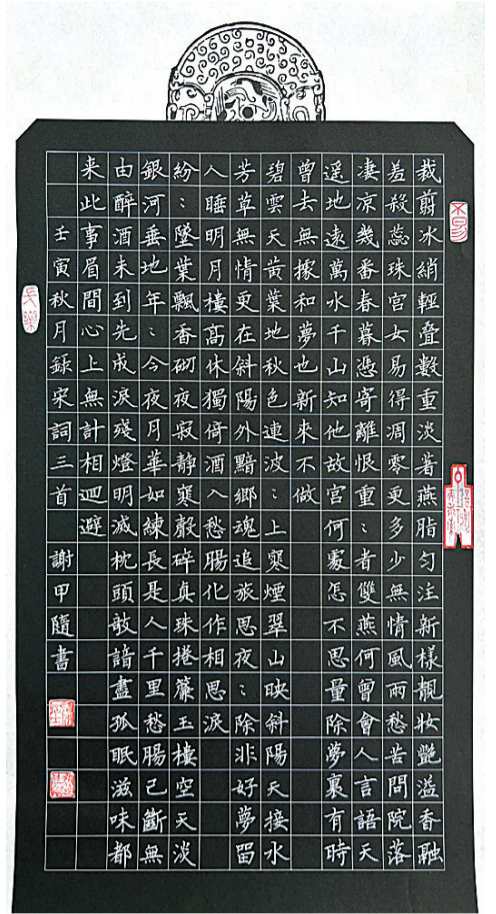 裁翦冰綃輕疊數重淡著燕脂勻注新樣靚妝艷溢香融
羞殺蕊珠宮女易得凋零更多少無情風雨愁苦問院落
凄凉幾番春暮憑寄離恨重：者雙燕何曾會人言語天
遥地遠萬水千山知他故宮何處怎不思量除夢裏有時
曾去無據和夢也新來不做
碧雲天黃葉地秋色連波：上寒煙翠山映斜陽天接水
芳草無情更在斜陽外黯鄉魂追旅思夜：除非好夢留
人睡明月樓高休獨倚酒入愁腸化作相思淚
紛：墜葉飄香砌夜寂靜寒聲碎真珠捲簾玉樓空天淡
銀河垂地年：今夜月華如練長是人千里愁腸已斷無
由醉酒未到先成淚殘燈明滅枕頭敧諳盡孤眠滋味都
来此事眉間心上無計相迴避
壬寅秋月錄宋詞三首 謝甲隨書
不易